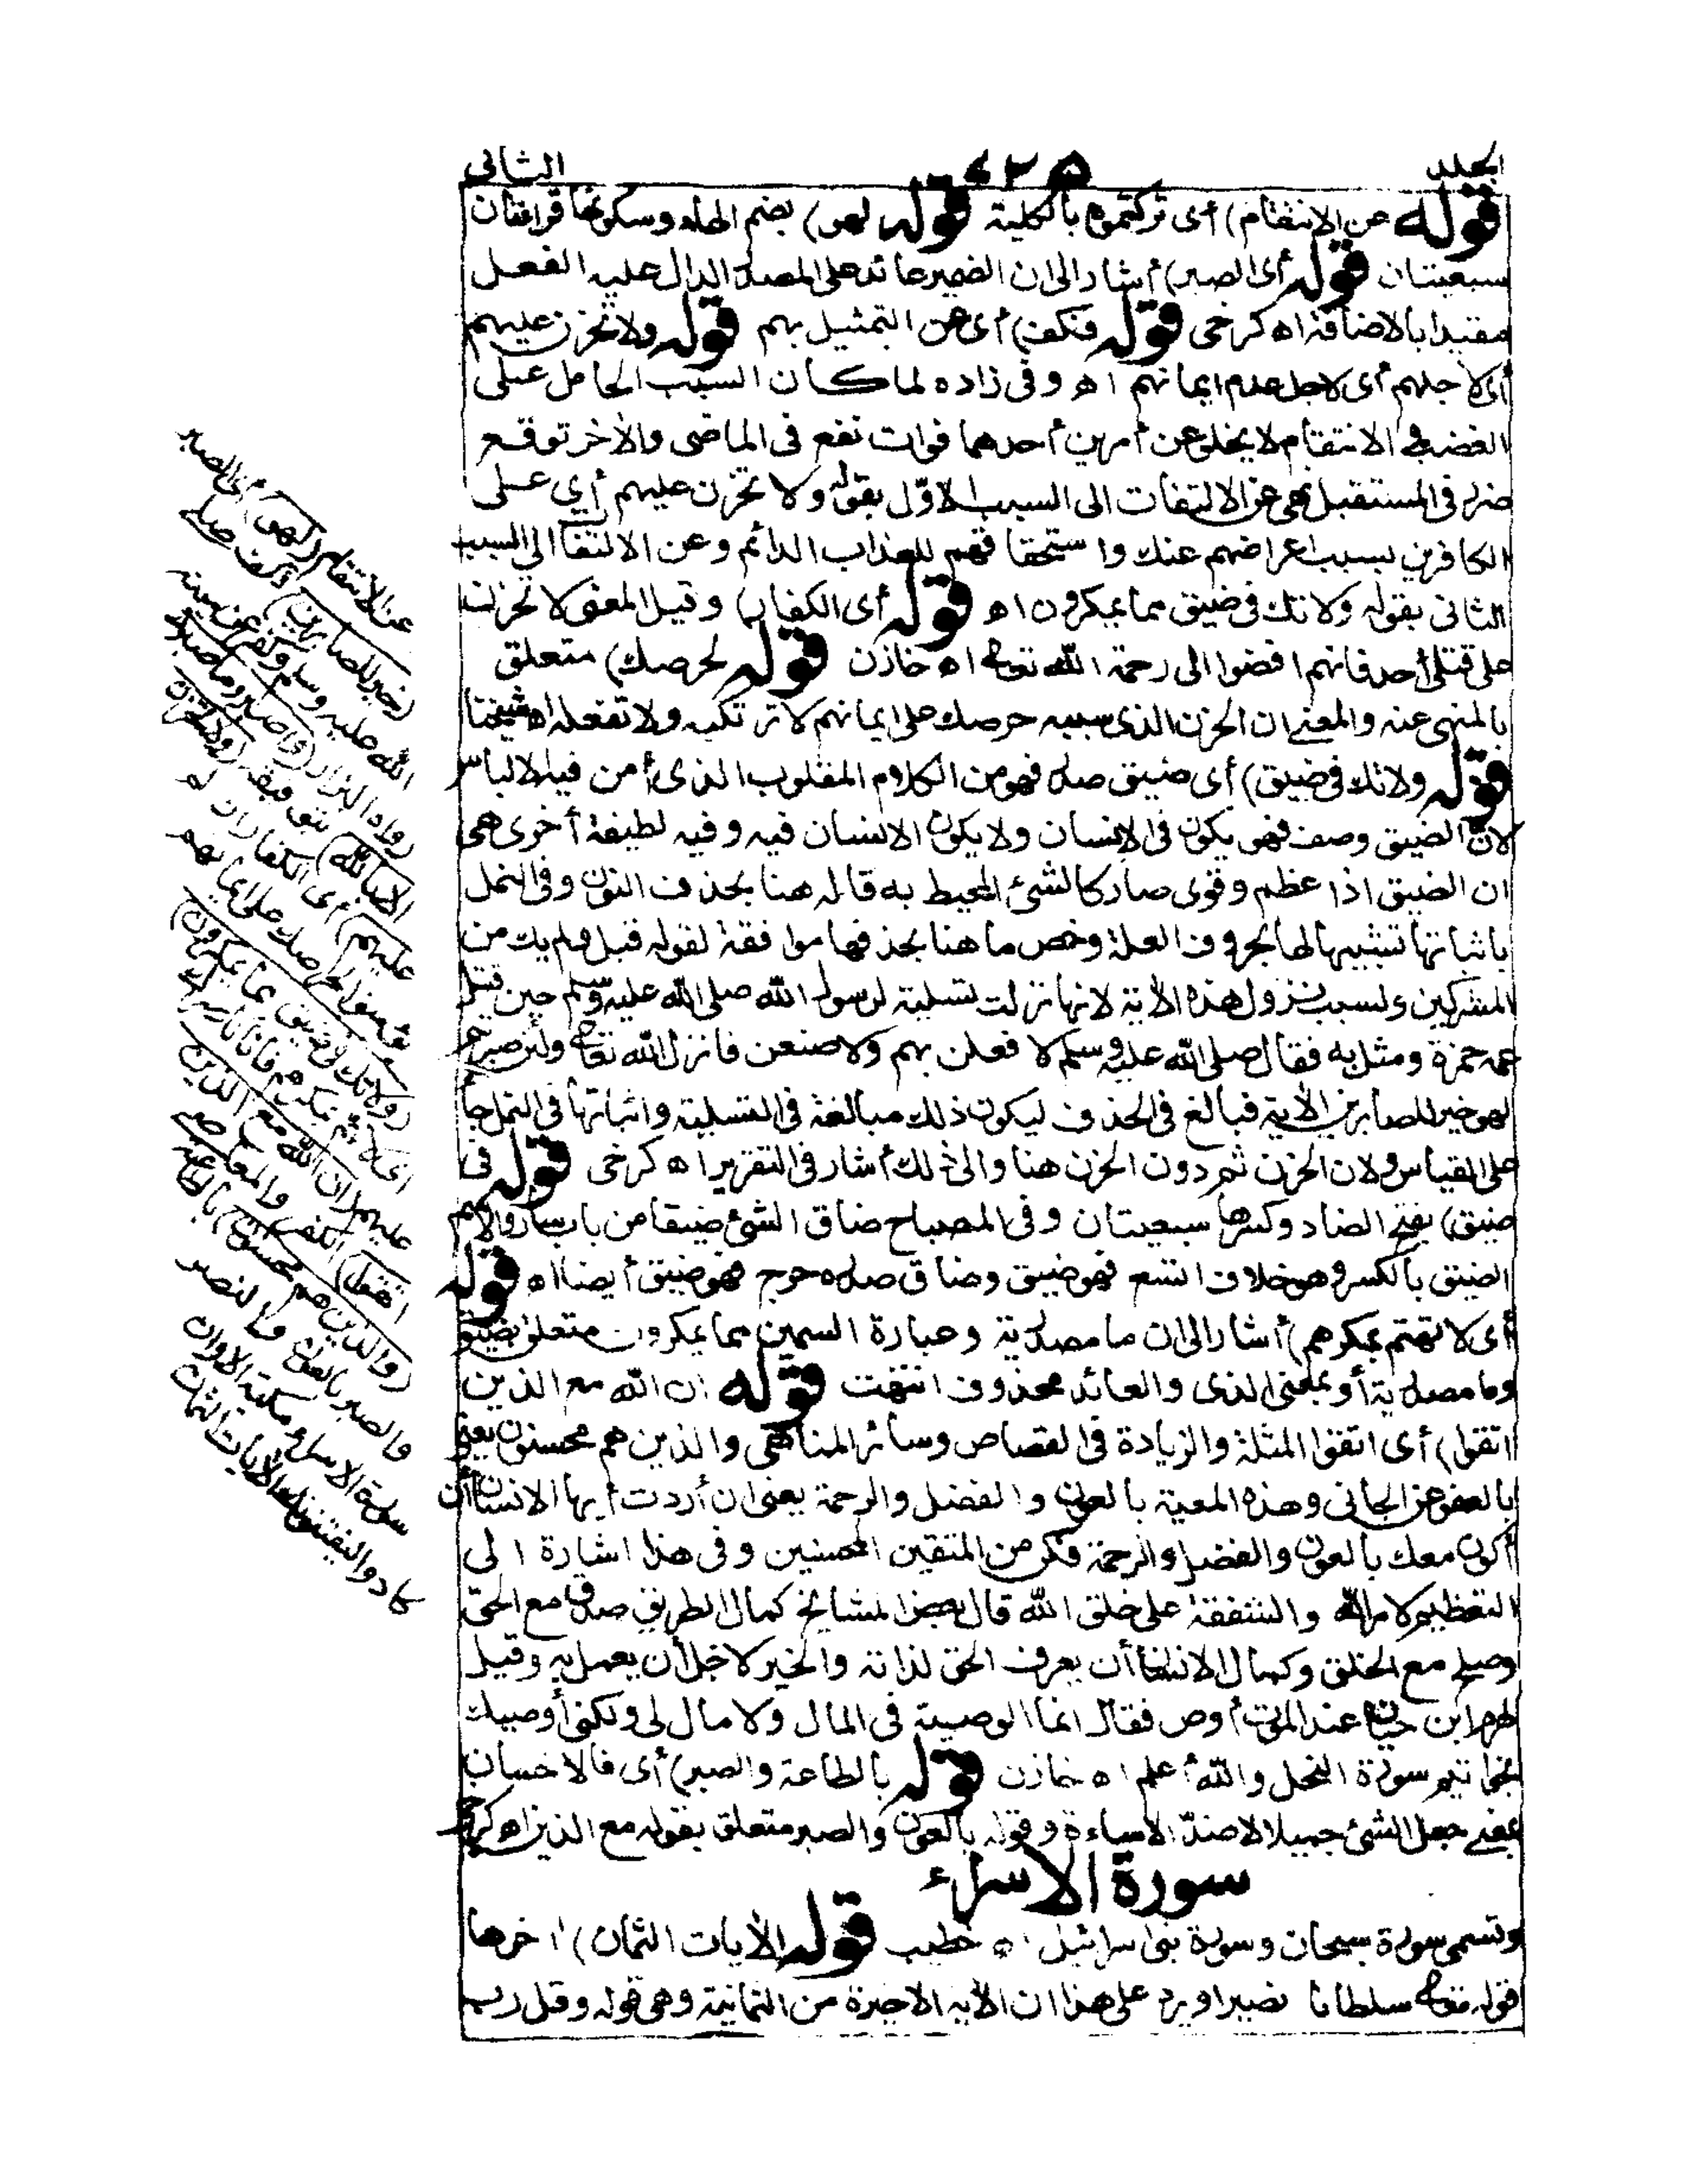 الجلد ٤٢٥ الثانى
قوله عن الانتقام) أى تركتموه بالكلية قوله لهو) بضم الهاء وسكونها قراءتان
سبعيتان قوله أى الصبر) أشار الى ان الضمير عائد على المصدر الدال عليه الفعل
مقيدا بالاضافة اه كرخى قوله فنكف) أى عن التمثيل بهم قوله ولا تحزن عليهم
أى لاجلهم أى لاجل عدم ايمانهم اه وفى زاده لما كان السبب الحامل على
الغضب و الانتقام لا يخلو عن أمرين أحدهما فوات نفع فى الماضى والأخر توقع
ضرر فى المستقبل نهى عن الالتفات الى السبب الاوّل بقوله ولا تحزن عليهم أى على
الكافرين بسبب اعراضهم عنك واستحقاقهم للعذاب الدائم وعن الالتفا الى السبب
الثانى بقوله ولا تك فى ضيق مما يمكرون اه قوله أى الكفار) وقيل المعنى لا تحزن
على قتلى أحد فانهم افضوا الى رحمة الله تعالى اه خازن قوله لحرصك) متعلق
بالمنهى عنه والمعنى ان الحزن الذى سببه حرصك على ايمانهم لا ترتكبه ولا تفعله اه شيخنا
قوله ولا تك فى ضيق) أى ضيق صدر فهو من الكلام المقلوب الذى أمن فيه الالباس
لانّ الضيق وصف فهو يكون فى الانسان ولا يكون الانسان فيه وفيه لطيفة أخرى هى
ان الضيق اذا عظم وقوى صار كالشئ المحيط به قاله هنا بحذف النون وفى النمل
باثباتها تشبيها لها بحروف العلة وخص ما هنا بحذفها موافقة لقوله قبل ولم يك من
المشركين ولسبب نزول هذه الأية لانها نزلت تسلية لرسول الله صلى الله عليه وسلم حين قتل
عمه حمزة ومثل به فقال صلى الله عليه وسلم لا فعلن بهم ولاصنعن فانزل الله تعالى ولئن صبرتم
لهو خير للصابرين الأية فبالغ فى الحذف ليكون ذلك مبالغة فى التسلية واثباتها فى النمل جا
على القياس ولان الحزن ثم دون الحزن هنا والى ذلك أشار فى التقرير اه كرخى قوله فى
ضيق) بفتح الضاد وكسرها سبعيتان وفى المصباح ضاق الشئ ضيقا من باب سار والاسم
الضيق بالكسر وهو خلاف اتسع فهو ضيق وضاق صدره حرج فهو ضيق أيضا اه قوله
أى لا تهتم بمكرهم) أشار الى ان ما مصدرية وعبارة السمين مما يمكرون متعلق بضيق
وما مصدرية أو بمعنى الذى والعائد محذوف انتهت قوله ان الله مع الذين
اتقوا) أى اتقوا المثلة والزيادة فى القصاص وسائر المناهى والذين هم محسنون يعنى
بالعفو عن الجانى وهذه المعية بالعون والفضل والرحمة يعنى ان أردت أيها الانسان أن
أكون معك بالعون والفضل والرحمة فكن من المتقين المحسنين وفى هذا اشارة الى
التعظيم لامر الله والشفقة على خلق الله قال بعض المشايخ كمال الطريق صدق مع الحق
وخلق مع الخلق وكمال الانسان أن يعرف الحق لذاته والخير لاجل أن يعمل به وقيل
لهرم ابن حيان عند الموت أوص فقال انما الوصية فى المال ولا مال لى ولكنى أوصيك
بخواتيم سورة النحل والله أعلم اه خازن قوله بالطاعة والصبر) أى فالاحسان
بمعنى جعل الشئ جميلا لا ضدّ الاساءة وقوله بالعون والصبر متعلق بقوله مع الذين اه كرخى
سورة الاسراء
وتسمى سورة سبحان وسورة بنى اسرائيل اه خطيب قوله الأيات الثمان) اخرها
قوله تعالى سلطانا نصيرا ويرد على هذا ان الأية الاخيرة من الثمانية وهى قوله وقل رب
عن الانتقام (لهو) أى الصبر
(خير للصابرين) فكف صلى
الله عليه وسلم وكفر عن يمينه
رواه البزار (واصبر وما صبرك
الا بالله) بتوفيقه (ولا تحزن
عليهم) أى الكفار ان لم
يؤمنوا لحرصك على ايمانهم
(ولا تك فى ضيق مما يمكرون)
أى لا تهتم بمكرهم فانا ناصرك
عليهم (ان الله مع الذين
اتقوا) الكفر والمعاصى
(والذين هم محسنون) بالطاعة
والصبر بالعون والنصر
سورة الاسراء مكية الا وان
كادوا ليفتنونك الأيات الثمان